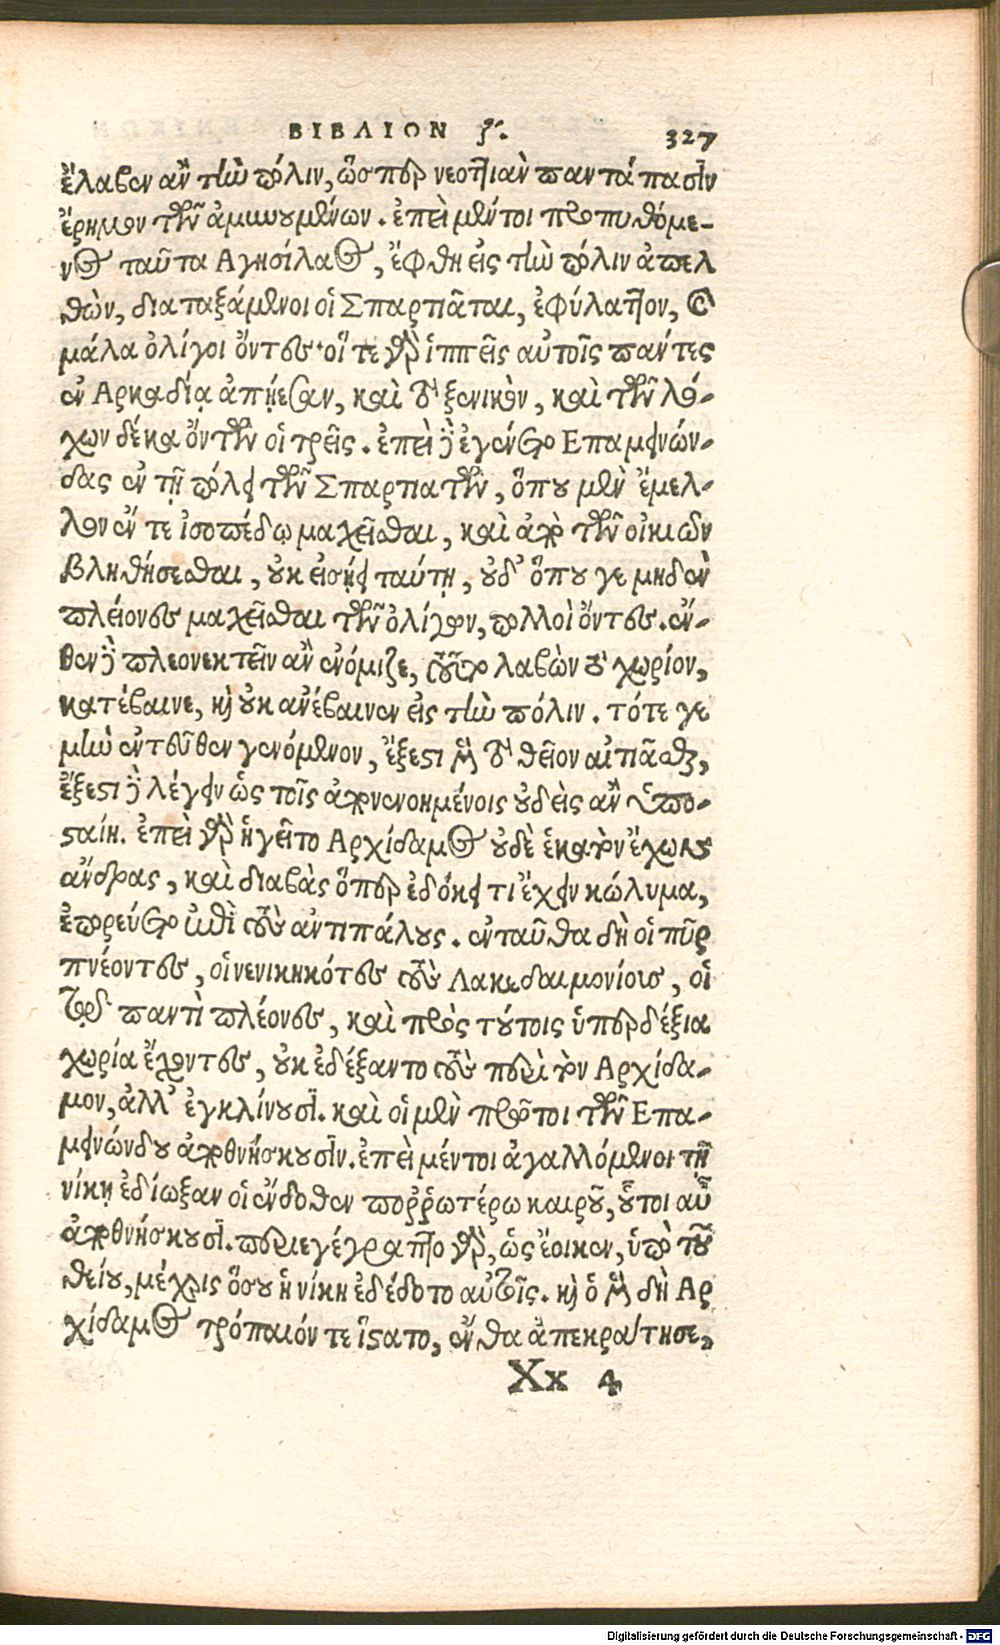 ΒΙΒΛΙΟΝ ζʹ. 327
ἔλαβεν ἂν τὴν πόλιν, ὥσπερ νεοττιὰν παντάπασιν
ἔρημον τῶν ἀμυνουμένων. ἐπεὶ μέντοι προπυθόμε-
νος ταῦτα Αγησίλαος, ἔφθη εἰς τὴν πόλιν ἀπελ
θὼν, διαταξάμενοι οἱ Σπαρτιᾶται, ἐφύλαττον, καὶ
μάλα ὀλίγοι ὄντες· οἵ τε γὰρ ἱππεῖς αὐτοῖς πάντες
ἐν Αρκαδίᾳ ἀπῄεσαν, καὶ τὸ ξενικὸν, καὶ τῶν λό-
χων δέκα ὄντων οἱ τρεῖς. ἐπεὶ δὲ ἐγένετο Επαμεινών-
δας ἐν τῇ πόλει τῶν Σπαρτιατῶν, ὅπου μὲν ἔμελ-
λον ἔν τε ἰσοπέδῳ μαχεῖσθαι, καὶ ἀπὸ τῶν οἰκιῶν
βληθήσεσθαι, οὐκ εἰσῄει ταύτῃ, οὐδ' ὅπου γε μηδὲν
πλείονες μαχεῖσθαι τῶν ὀλίγων, πολλοὶ ὄντες. ἔν-
θεν δὲ πλεονεκτεῖν ἂν ἐνόμιζε, τοῦτο λαβὼν τὸ χωρίον,
κατέβαινε, καὶ οὐκ ἀνέβαινεν εἰς τὴν πόλιν. τότε γε
μὴν ἐντεῦθεν γενόμενον, ἔξεστι μὲν τὸ θεῖον αἰτιᾶσθαι,
ἔξεστι δὲ λέγειν ὡς τοῖς ἀπονενοημένοις οὐδεὶς ἂν ὑπο-
σταίη. ἐπεὶ γὰρ ἡγεῖτο Αρχίδαμος οὐδὲ ἑκατὸν ἔχων
ἄνδρας, καὶ διαβὰς ὅπερ ἐδόκει τι ἔχειν κώλυμα,
ἐπορεύετο ἐπὶ τοὺς ἀντιπάλους. ἐνταῦθα δὴ οἱ πῦρ
πνέοντες, οἱ νενικηκότες τοὺς Λακεδαιμονίους, οἱ
τῷ παντὶ πλέονες, καὶ πρὸς τούτοις ὑπερδέξια
χωρία ἔχοντες, οὐκ ἐδέξαντο τοὺς περὶ τὸν Αρχίδα-
μον, ἀλλ' ἐγκλίνουσι. καὶ οἱ μὲν πρῶτοι τῶν Επα-
μεινώνδου ἀποθνήσκουσιν. ἐπεὶ μέντοι ἀγαλλόμενοι τῇ
νίκῃ ἐδίωξαν οἱ ἔνδοθεν πορῤῥωτέρω καιροῦ, οὗτοι αὖ
ἀποθνήσκουσι. περιεγέγραπτο γὰρ, ὡς ἔοικεν, ὑπὸ τοῦ
θείου, μέχρις ὅσου ἡ νίκη ἐδέδοτο αὐτοῖς. καὶ ὁ μὲν δὴ Αρ
χίδαμος τρόπαιόν τε ἵστατο, ἔνθα ἀπεκράτησε,
Xx 4
Digitalisierung gefördert durch die Deutsche Forschungsgemeinschaft - DFG